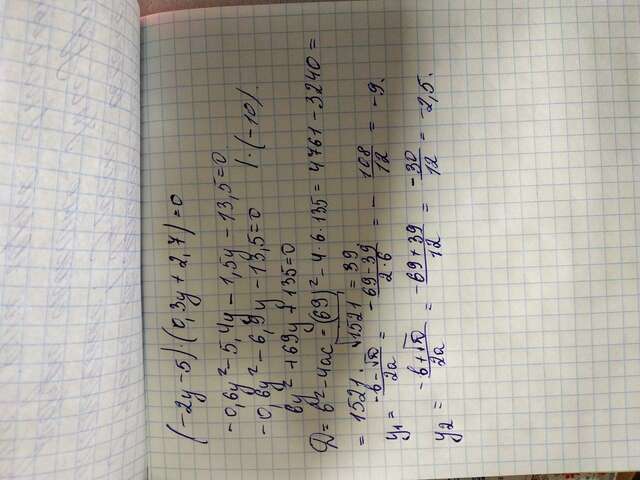 (-2y-5)·(0,3y+2,7)=0
-0,6y²-5,4y-1,5y-13,5=0
-0,6y²-6,9y-13,5=0 |·(-10)
6y²+69y+135=0
D=b²-4ac=(69)²-4·6·135=4761-3240=
=1521. √1521=39
y₁= (-b-√D)/2a = (-69-39)/2·6 = -108/12 = -9.
y₂= (-b+√D)/2a = (-69+39)/12 = -30/12 = -2,5.